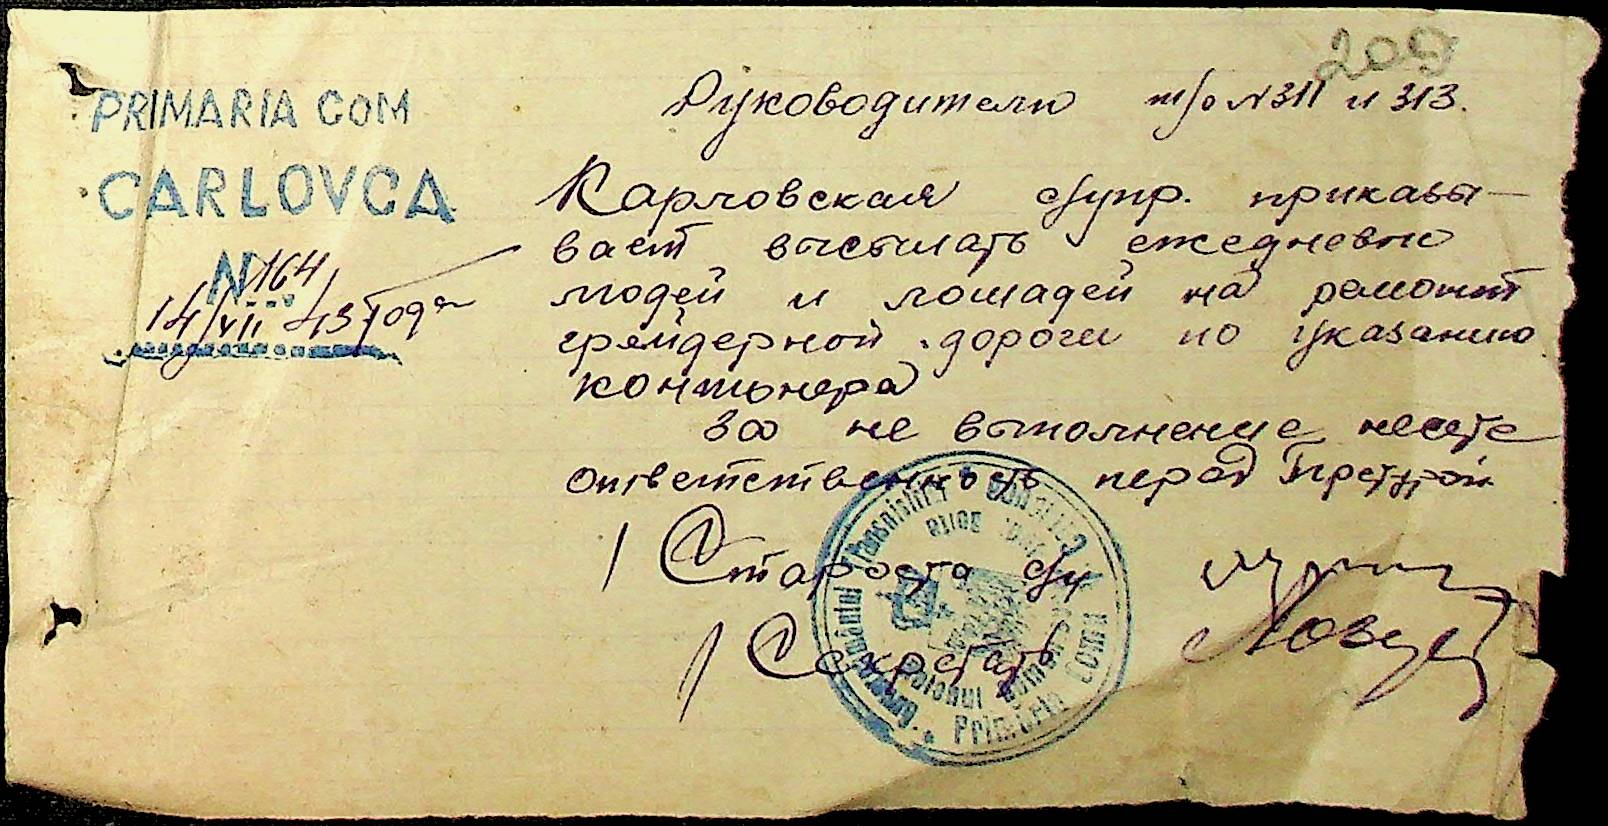 209
PRIMARIA COM
CARLOVCA
N 164
14/VII 43 года
Руководителю т/о N 311 и 313.
Карловская с/упр. приказы-
вает высылать ежедневно
людей и лошадей на ремонт
грейдерной дороги по указанию
контонера
За не выполнение несете
ответственность перед Претурой
Староста с/у
Секретарь
Guvernământul Transnistriei
Primăria Comunei